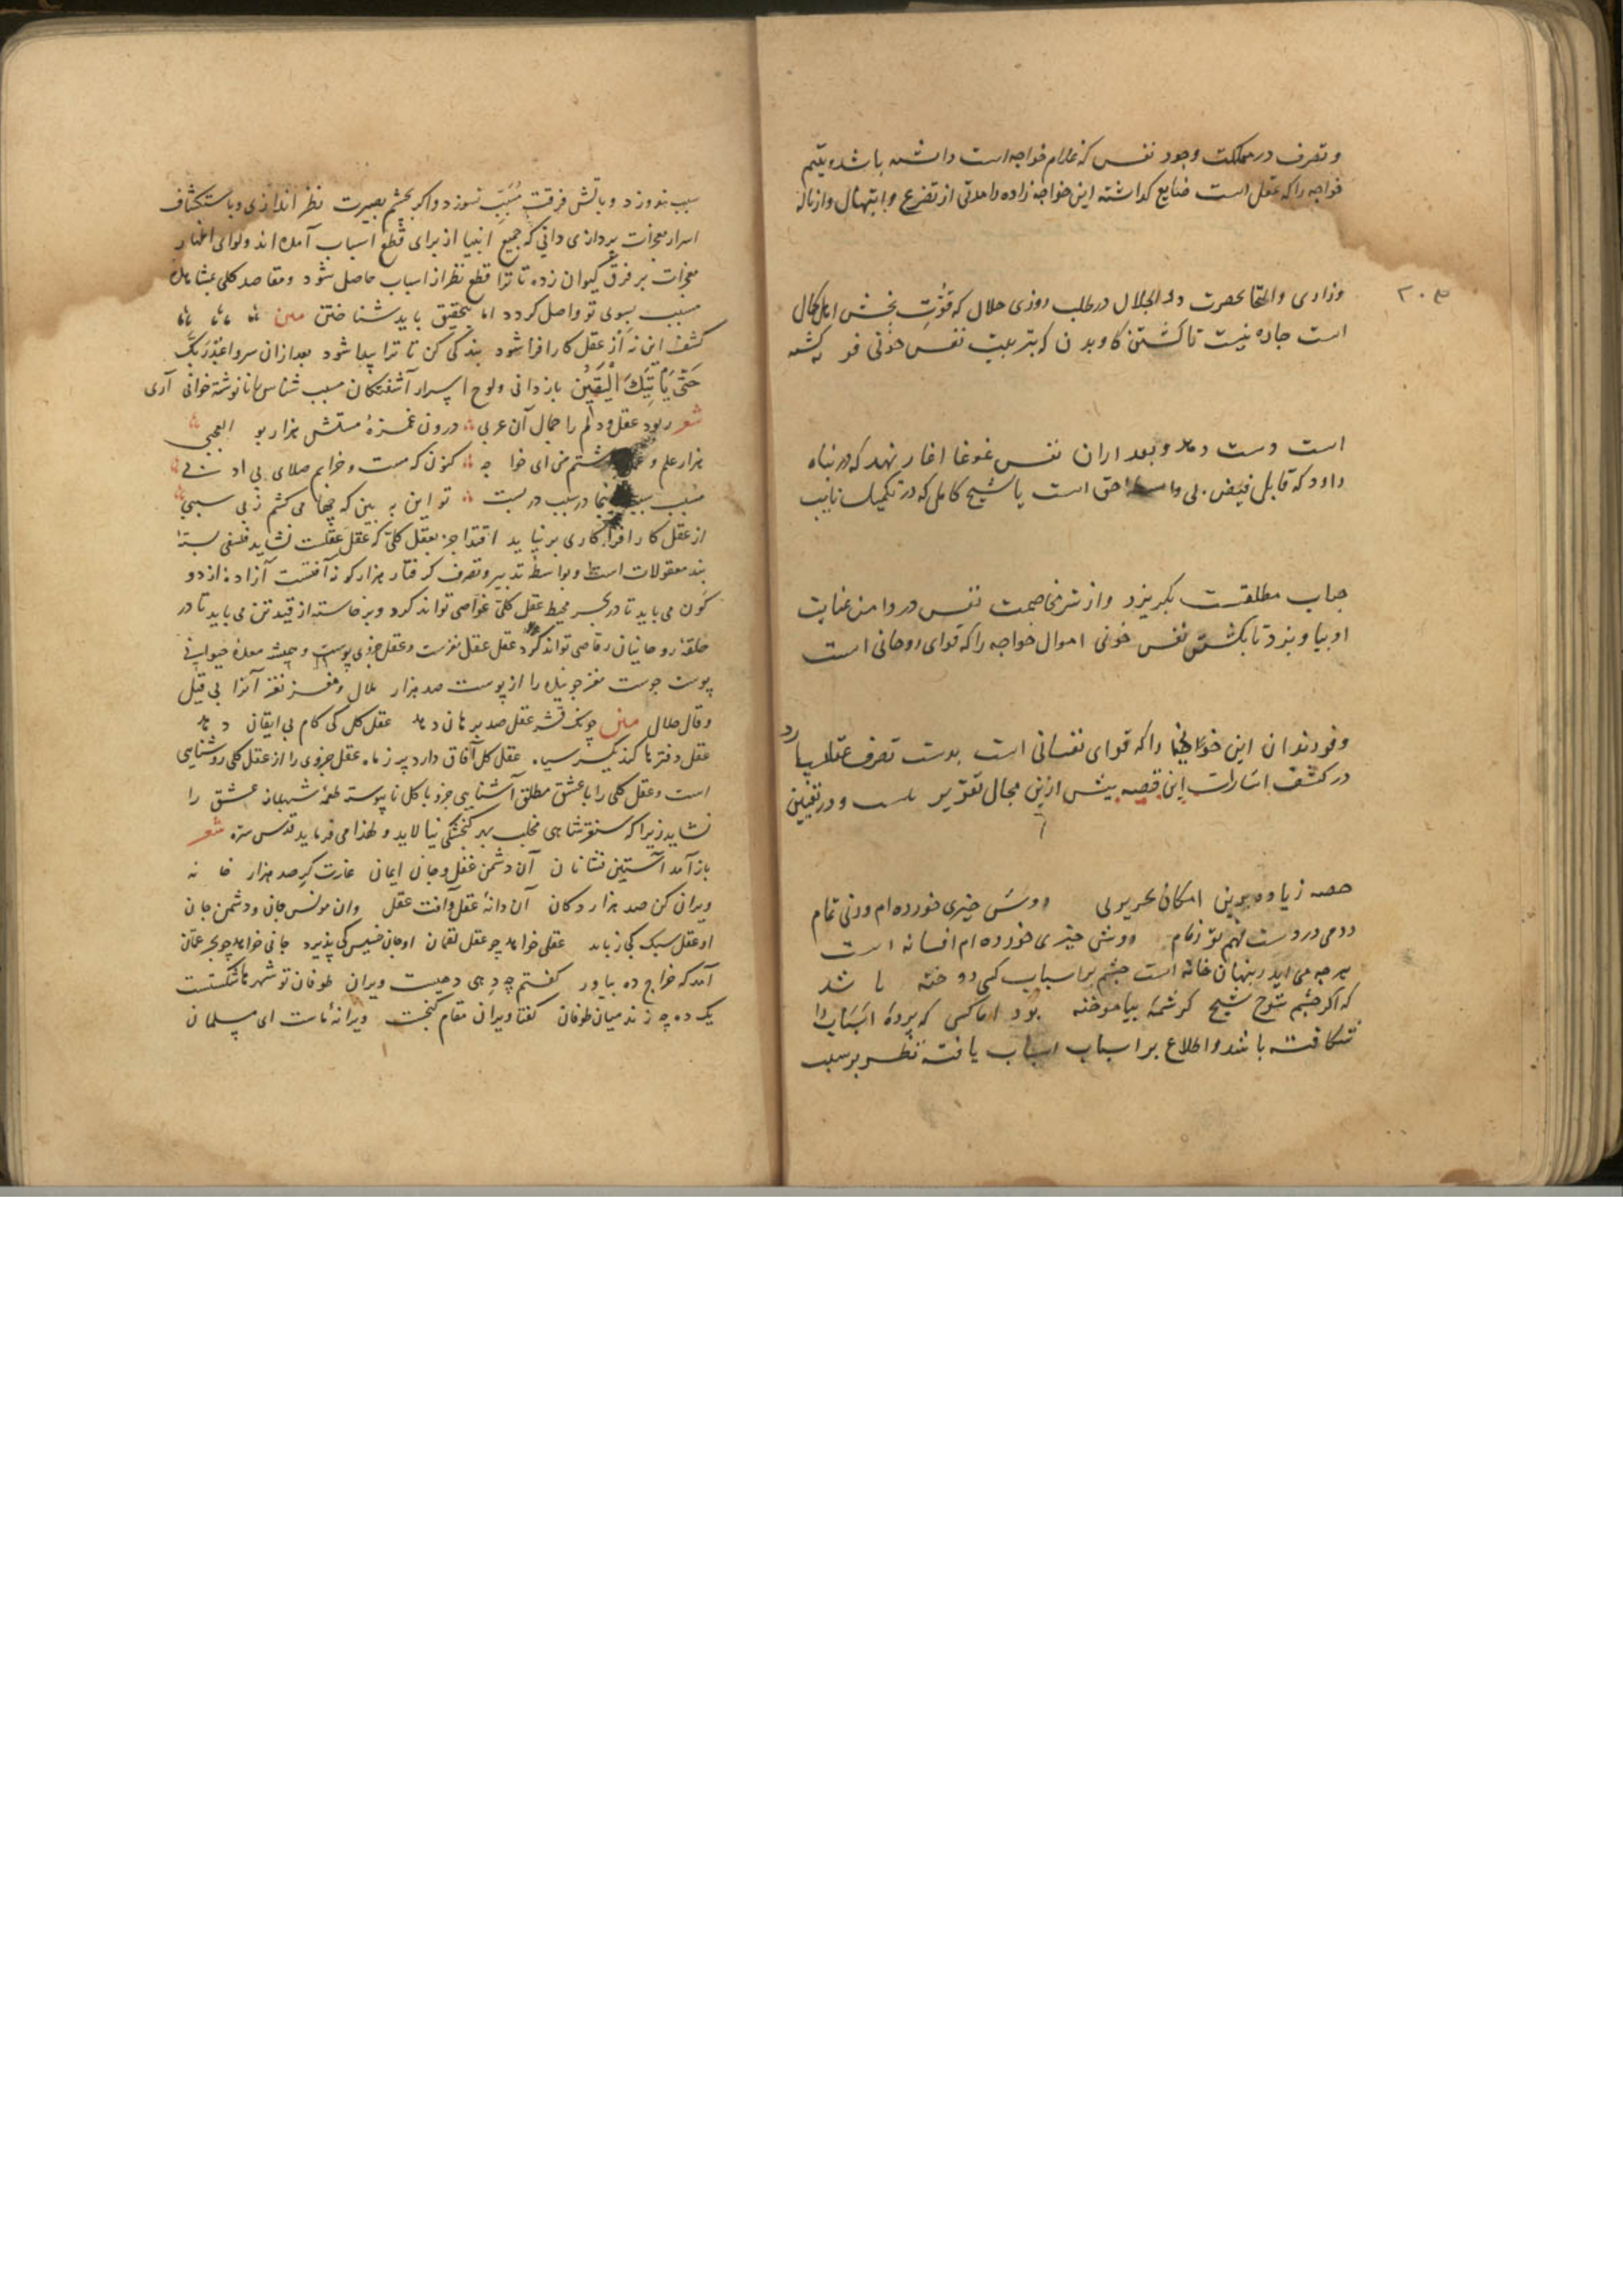 و تصرف در مملکت وجود نفس که غلام خواجه است داشته باشد و یتیم
خواجه را که عقل است ضایع گذاشته این خواجه زاده را مدتی از تضرع و ابتهال و از ناله
۲۰۳
و زاری و التجا بحضرت ذو الجلال در طلب روزی حلال که قوت بخش اهل کمال
است چاره نیست تا کشتن گاو بدن که بتربیت نفس خونی فربه کشته
است دست دهد و بعد ازان نفس غوغا اغاز نهد که در پناه
داود که قابل فیض بی واسطه حق است یا شیخ کامل که در تکمیل نایب
جناب مطلقست بگریزد و از شر مخاصمت نفس در دامن عنایت
او بیاویزد تا بکشتن نفس خونی اموال خواجه را که قوای روحانی است
و فرزندان این خواجه را که قوای نفسانی است بدست تصرف عقل سپارد
در کشف اشارات این قصه بیش ازین مجال تقریر نیست و در تعیین
حصه زیاده برین امکان تحریر نی دوش چیزی خورده ام ورنی تمام
دادمی در دست فهم تو زمام دوش چیزی خورده ام افسانه است
هرچه می اید ز پنهان خانه است چشم بر اسباب کسی دوخته باشد
که اگر چشم شوخ شیخ کرشمه بیاموخته بود اما کسی که پرده اسباب را
شکافته باشد و اطلاع بر اسباب اسباب یافته نظر بر سبب
سبب ندوزد و باتش فرقت مسبب نسوزد و اکر بچشم بصیرت نظر اندازی و باستکشاف
اسرار معجزات پردازی دانی که جمیع انبیا از برای قطع اسباب آمده اند و لوای اظهار
معجزات بر فرق کیوان زده تا ترا قطع نظر از اسباب حاصل شود و مقاصد کلی بمشاهده
مسبب بسوی تو واصل کردد اما بتحقیق باید شناختن
کشف این نه از عقل کار افزا شود بندگی کن تا ترا پیدا شود بعد ازان سر واعبد ربک
حتی یأتیک الیقین بازدانی و لوح اسرار آشفتکان مسبب شناس را نانوشته خوانی آری
شعر ربود عقل و دلم را جمال آن عربی درون غمزه مستش هزار بو العجبی
هزار علم و داشتم من ای خواجه کنون که مست و خرابم صلای بی ادبی
مسبب سبب اینجا در سبب در بست تو این به بین که چها می کشم ز بی سببی
از عقل کار افزا کاری بر نیاید اقتدا جز بعقل کلی که عقل عقلست نشاید فلسفی بسته
بند معقولات است و بواسطه تدبیر و تصرف گرفتار هزار گونه آفتست آزاده از دو
کون می باید تا در بحر محیط عقل کلی غواصی تواند کرد و برخاسته از قید تن می باید تا در
حلقه روحانیان رقاصی تواند کرد عقل عقل مغزست و عقل جزوی پوست و همیشه معده حیوانی
پوست جوست مغز جوینده را از پوست صد هزار ملال و مغز نغز آنرا بی قیل
و قال حلال چونک قشر عقل صد برهان دهد عقل کل کی گام بی ایقان دهد
عقل دفترها کند یکسر سیاه عقل کل آفاق دارد پر ز ماه عقل جزوی را از عقل کلی روشنایی
است و عقل کلی را با عشق مطلق آشنایی جزو با کل ناپیوسته طعمه شهباز عشق را
نشاید زیرا که سنقر شاهی مخلب بهر کنجشکی نیالاید و لهذا می فرماید قدس سره شعر
باز آمد آستین فشانان آن دشمن عقل و جان ایمان غارت گر صد هزار خانه
ویران کن صد هزار دکان آن دانه عقل و آفت عقل وان مونس جان و دشمن جان
او عقل سبک کی رباید عقلی خواهد چو عقل لقمان او جان خسیس کی پذیرد جانی خواهد چو بحر عمان
آمد که خراج ده بیاور گفتم چه دهی دهیست ویران طوفان تو شهرها شکستست
یک ده چه زند میان طوفان گفتا ویران مقام گنجست ویرانه ماست ای مسلمان